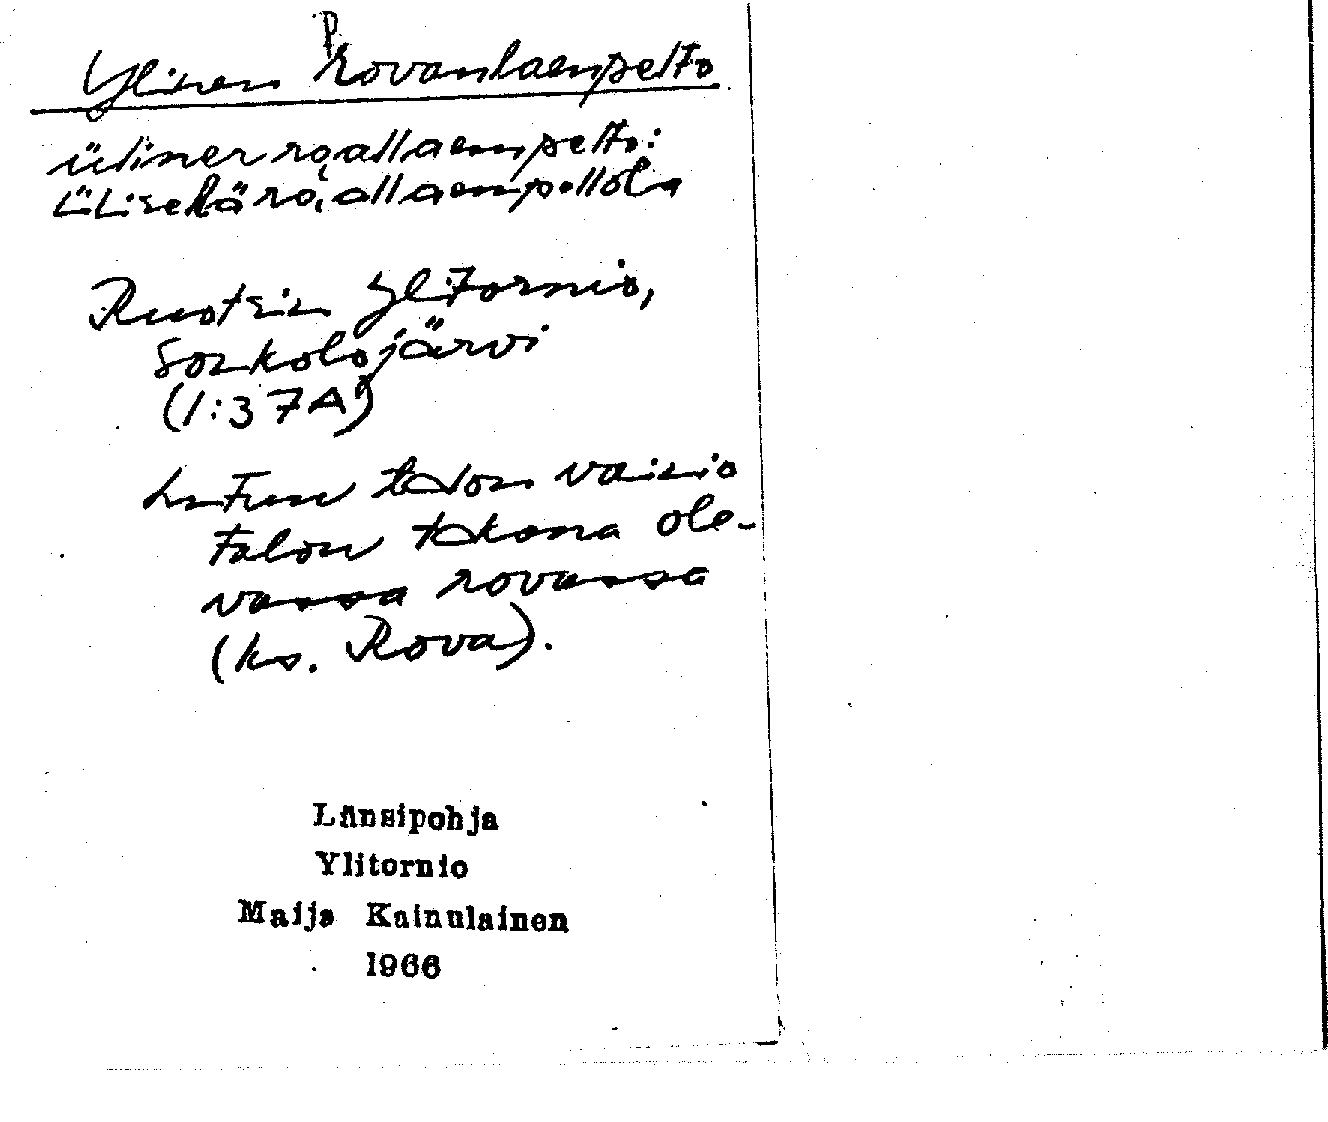 P
Ylinen Rovanlaenpelto
ülinen roallaempelto:
ülisekä roallaempellola
Ruotsin Ylitornio,
Soukolojärvi
(1:37A)
talon vainio
talon takana ole-
vassa rovassa
(ks. Rova).
Länsipohja
Ylitornio
Maija Kainulainen
1966